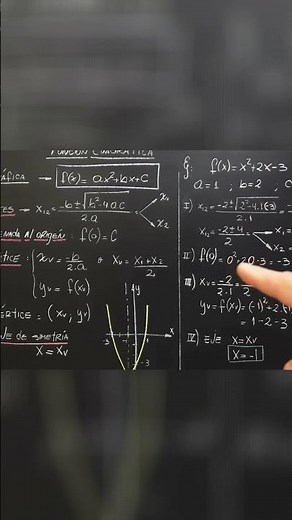 FUNCIÓN CUADRÁTICA
ÁFICA → f(x) = ax²+bx+c
x₁,₂ = -b±√b²-4ac / 2.a
x₁
x₂
ENADA AL ORIGEN: f(0) = C
TICE: { xv = -b/2.a o xv = x₁+x₂/2
yv = f(xv)
ÉRTICE = (xv, yv)
EJE DE SIMETRÍA
X = Xv
y
x
-3 -1 1
-3
Ej: f(x) = x²+2x-3
a=1 ; b=2 ; c
I) x₁,₂ = -2±√2²-4.1.(-3) / 2.1
x₁,₂ = -2±4 / 2
II) f(0) = 0²+2.0-3 = -3
III) xv = -2/2.1 = -2/2
yv = f(xv) = (-1)²+2.(
= 1-2-3
IV) EJE X=Xv
X=-1